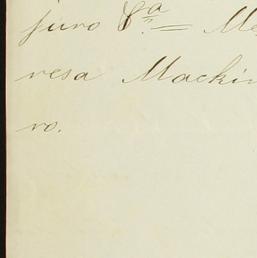 juro &ª = Me
resa Machin
ro.